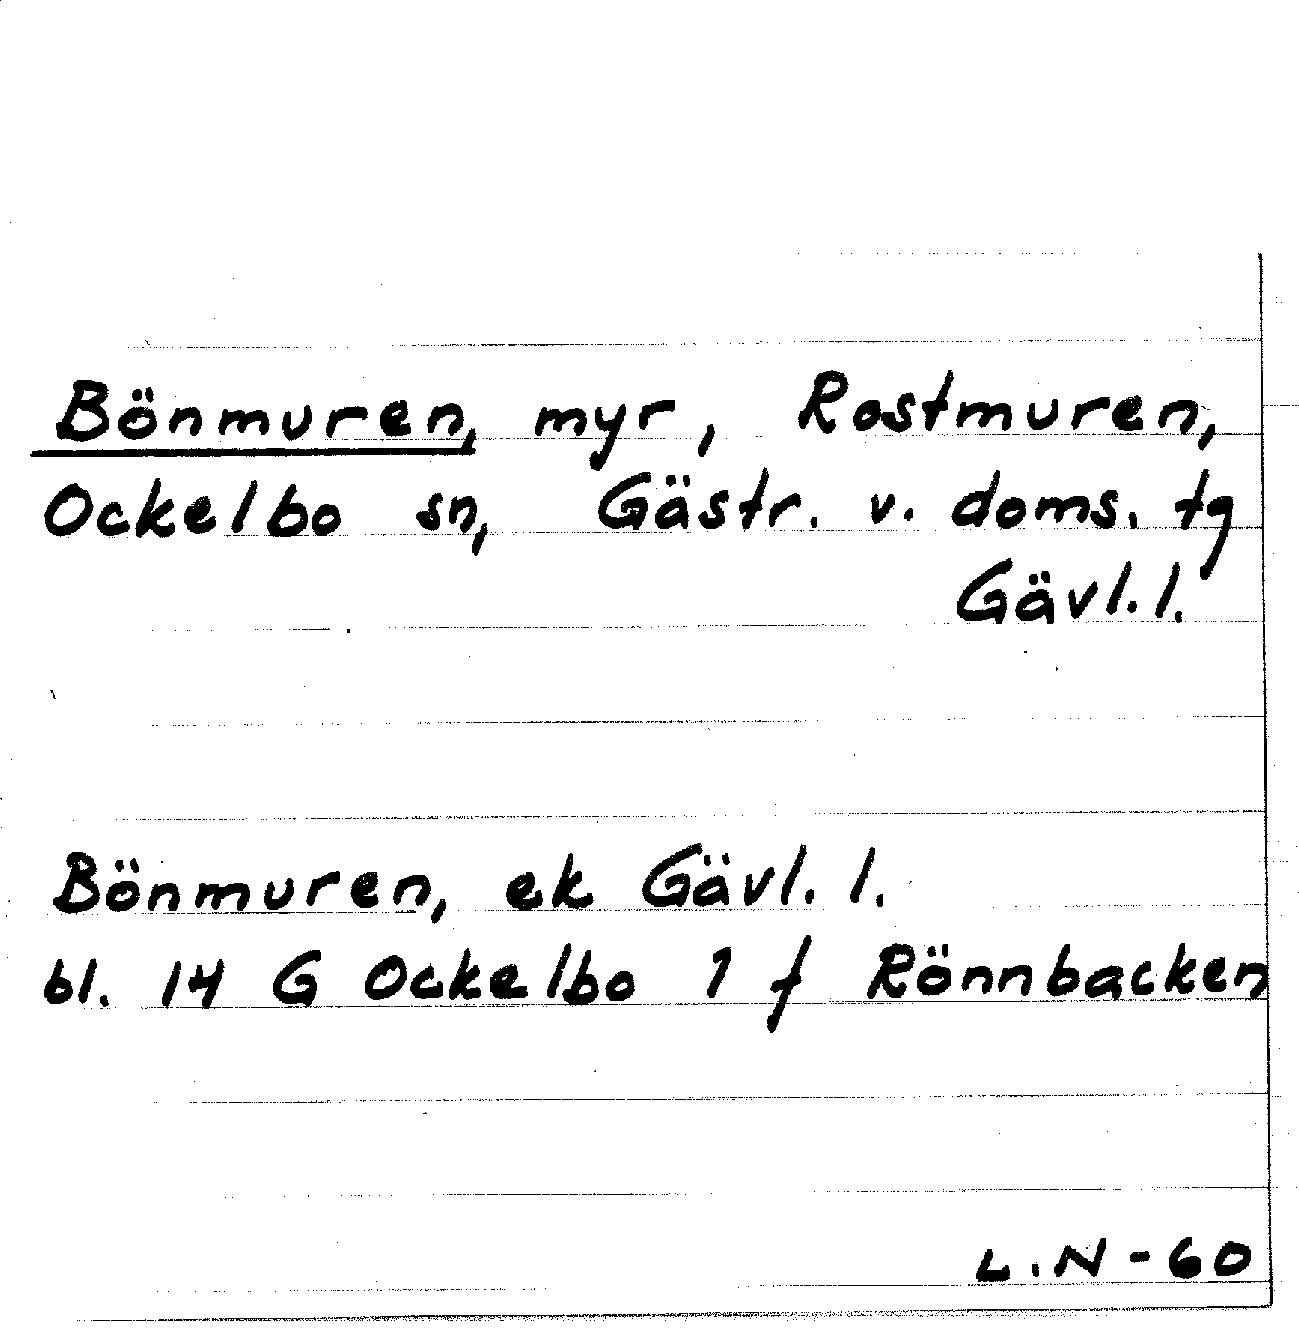 Bönmuren, myr, Rostmuren,
Ockelbo sn, Gästr. v. doms. tg
Gävl. l.
Bönmuren, ek Gävl. l.
bl. 14 G Ockelbo 1 f Rönnbacken
L.N - 60